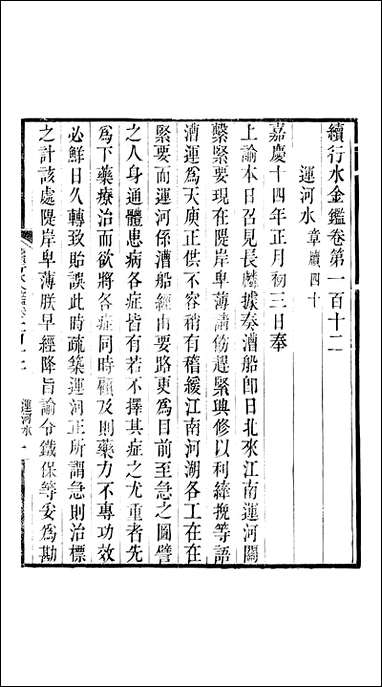 續行水金鑑卷第一百十二
運河水章牘四十
嘉慶十四年正月初三日奉
上諭本日召見長麟據奏漕船卽日北來江南運河關
繫緊要現在隄岸卑薄請飭趕緊興修以利縴挽等語
漕運爲天庾正供不容稍有稽緩江南河湖各工在在
緊要而運河係漕船經由要路更爲目前至急之圖譬
之人身通體患病各症皆有若不擇其症之尤重者先
爲下藥療治而欲將各症同時顧及則藥力不專功效
必鮮日久轉致貽誤此時疏築運河正所謂急則治標
之計該處隄岸卑薄朕早經降旨諭令鐵保等妥爲勘
運河水 一